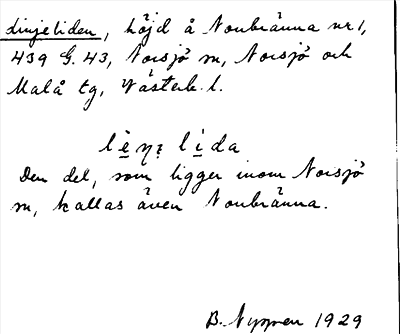 dinjeliden, höjd å Nonbränna nr 1,
439 G. 43, Norsjö sn, Norsjö och
Malå tg, Västerb. l.
Den del, som ligger inom Norsjö
sn, kallas även Nonbränna.
B. Nyman 1929